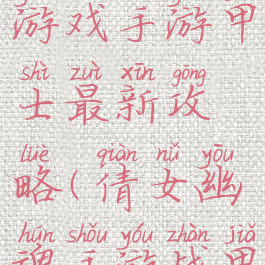 游戏手游甲
shì zuì xīn gōng
士最新攻
lüè qiàn nǚ yōu
略(倩女幽
hún shǒu yóu zhàn jiǎ
魂手游战甲